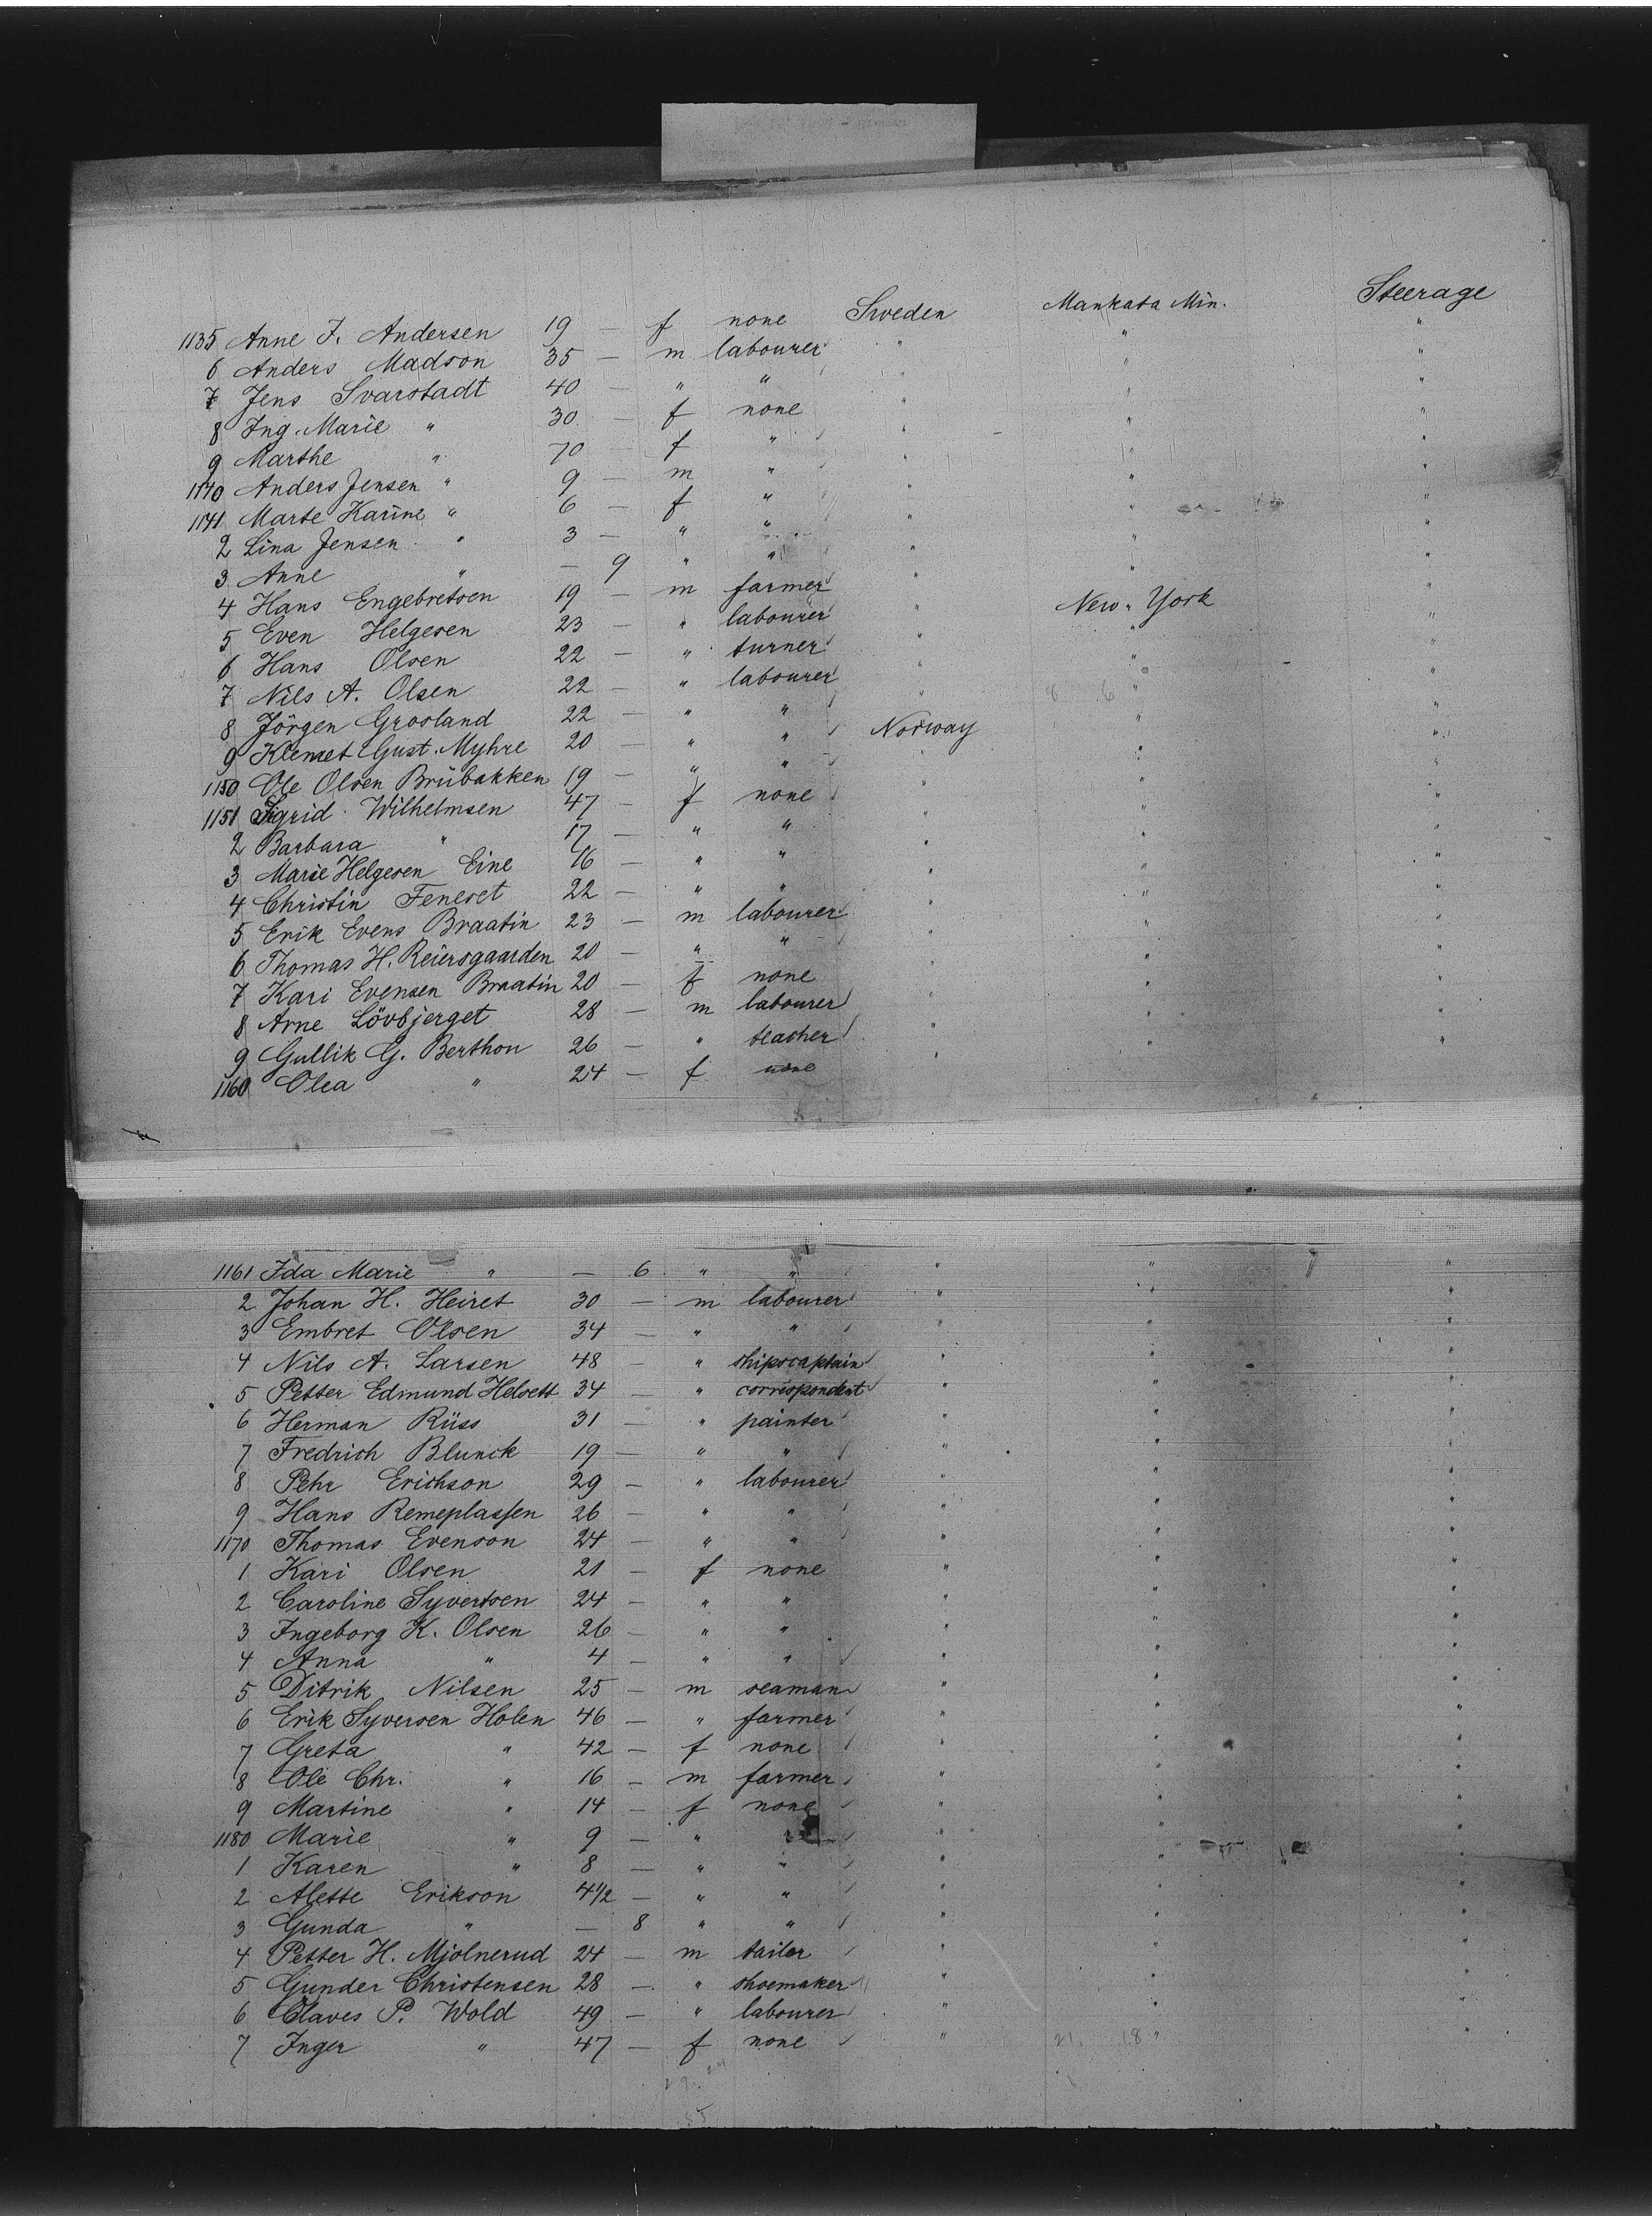 1135 Anne J. Andersen 19 — f none Sweden Mankata Min. Steerage
6 Anders Madson 35 — m labourer " " "
7 Jens Svarstadt 40 — " " " " "
8 Ing. Marie " 30 — f none " " "
9 Marthe " 70 — f " " " "
1140 Anders Jensen " 9 — m " " " "
1141 Marte Karine " 6 — f " " " "
2 Lina Jensen " 3 — " " " " "
3 Anne " — 9 " " " " "
4 Hans Engebretsen 19 — m farmer " New-York "
5 Even Helgesen 23 — " labourer " " "
6 Hans Olsen 22 — " turner " " "
7 Nils A. Olsen 22 — " labourer " " "
8 Jörgen Grosland 22 — " " Norway " "
9 Klemet Gust. Myhre 20 — " " " " "
1150 Ole Olsen Brübakken 19 — " " " " "
1151 Sigrid Wilhelmsen 47 — f none " " "
2 Barbara " 17 — " " " " "
3 Marie Helgesen Eine 16 — " " " " "
4 Christin Feneset 22 — " " " " "
5 Erik Evens Braatin 23 — m labourer " " "
6 Thomas H. Reiersgaarden 20 — " " " " "
7 Kari Evensen Braatin 20 — f none " " "
8 Arne Lövbjerget 28 — m labourer " " "
9 Gullik G. Berthon 26 — " teacher " " "
1160 Olea " 24 — f none " " "
1161 Ida Marie " — 6 " " " " "
2 Johan H. Heiret 30 — m labourer " " "
3 Embret Olsen 34 — " " " " "
4 Nils A. Larsen 48 — " shipscaptain " " "
5 Petter Edmund Helsett 34 — " correspondent " " "
6 Herman Rüss 31 — " painter " " "
7 Fredrich Blunck 19 — " " " " "
8 Pehr Erichson 29 — " labourer " " "
9 Hans Remeplassen 26 — " " " " "
1170 Thomas Evenson 24 — " " " " "
1 Kari Olsen 21 — f none " " "
2 Caroline Syvertsen 24 — " " " " "
3 Ingeborg K. Olsen 26 — " " " " "
4 Anna " 4 — " " " " "
5 Ditrik Nilsen 25 — m seaman " " "
6 Erik Syversen Holen 46 — " farmer " " "
7 Greta " 42 — f none " " "
8 Ole Chr. " 16 — m farmer " " "
9 Martine " 14 — f none " " "
1180 Marie " 9 — " " " " "
1 Karen " 8 — " " " " "
2 Alette Erikson 4 1/2 — " " " " "
3 Gunda " — 8 " " " " "
4 Petter H. Mjölnerud 24 — m tailor " " "
5 Gunder Christensen 28 — " shoemaker " " "
6 Claves P. Wold 49 — " labourer " " "
7 Inger " 47 — f none " 21. 18 " "